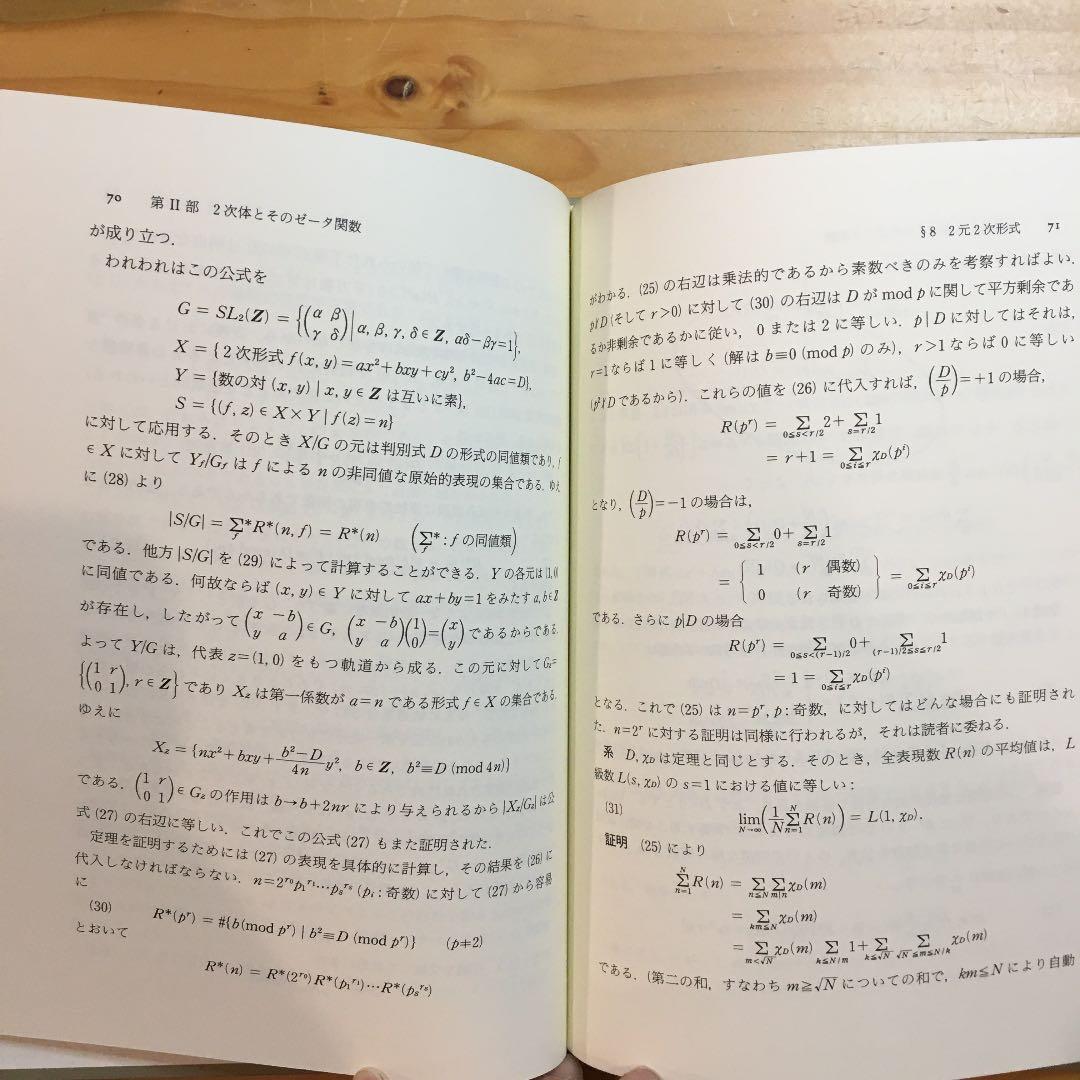 70 第 II 部 2次体とそのゼータ関数
が成り立つ.
われわれはこの公式を
G = SL₂(Z) = {(α β / γ δ) | α, β, γ, δ ∈ Z, αδ−βγ=1},
X = {2次形式 f(x, y)=ax²+bxy+cy², b²−4ac=D},
Y = {数の対 (x, y) | x, y ∈ Z は互いに素},
S = {(f, z) ∈ X×Y | f(z)=n}
に対して応用する. そのとき X/G の元は判別式 D の形式の同値類であり, f
∈ X に対して Y_f/G_f は f による n の非同値な原始的表現の集合である. ゆえ
に (28) より
|S/G| = Σ*_f R*(n, f) = R*(n) (Σ*_f : f の同値類)
である. 他方 |S/G| を (29) によって計算することができる. Y の各元は (1, 0)
に同値である. 何故ならば (x, y) ∈ Y に対して ax+by=1 をみたす a, b ∈ Z
が存在し, したがって (x −b / y a) ∈ G, (x −b / y a)(1 / 0)=(x / y) であるからである.
よって Y/G は, 代表 z=(1, 0) をもつ軌道から成る. この元に対して G_z=
{(1 r / 0 1), r ∈ Z} であり X_z は第一係数が a=n である形式 f ∈ X の集合である.
ゆえに
X_z = {nx²+bxy+(b²−D)/4n y², b ∈ Z, b²≡D (mod 4n)}
である. (1 r / 0 1) ∈ G_z の作用は b→b+2nr により与えられるから |X_z/G_z| は公
式 (27) の右辺に等しい. これでこの公式 (27) もまた証明された.
定理を証明するためには (27) の表現を具体的に計算し, その結果を (26) に
代入しなければならない. n=2^{r₀}p₁^{r₁}⋯p_s^{r_s} (p_i : 奇数) に対して (27) から容易
に
(30) R*(p^r) = #{b (mod p^r) | b²≡D (mod p^r)} (p≠2)
とおいて
R*(n) = R*(2^{r₀})R*(p₁^{r₁})⋯R*(p_s^{r_s})
§8 2元2次形式 71
がわかる. (25) の右辺は乗法的であるから素数べきのみを考察すればよい.
p∤D (そして r>0) に対して (30) の右辺は D が mod p に関して平方剰余であ
るか非剰余であるかに従い, 0 または 2 に等しい. p | D に対してはそれは,
r=1 ならば 1 に等しく (解は b≡0 (mod p) のみ), r>1 ならば 0 に等しい
(p²∤D であるから). これらの値を (26) に代入すれば, (D/p)=+1 の場合,
R(p^r) = Σ_{0≦s<r/2} 2 + Σ_{s=r/2} 1
= r+1 = Σ_{0≦i≦r} χ_D(p^i)
となり, (D/p)=−1 の場合は,
R(p^r) = Σ_{0≦s<r/2} 0 + Σ_{s=r/2} 1
= { 1 (r 偶数) / 0 (r 奇数) } = Σ_{0≦i≦r} χ_D(p^i)
である. さらに p|D の場合
R(p^r) = Σ_{0≦s<(r−1)/2} 0 + Σ_{(r−1)/2≦s≦r/2} 1
= 1 = Σ_{0≦i≦r} χ_D(p^i)
となる. これで (25) は n=p^r, p : 奇数, に対してはどんな場合にも証明され
た. n=2^r に対する証明は同様に行われるが, それは読者に委ねる.
系 D, χ_D は定理と同じとする. そのとき, 全表現数 R(n) の平均値は, L
級数 L(s, χ_D) の s=1 における値に等しい :
(31) lim_{N→∞} (1/N Σ_{n=1}^{N} R(n)) = L(1, χ_D).
証明 (25) により
Σ_{n=1}^{N} R(n) = Σ_{n≦N} Σ_{m|n} χ_D(m)
= Σ_{km≦N} χ_D(m)
= Σ_{m<√N} χ_D(m) Σ_{k≦N/m} 1 + Σ_{k≦√N} Σ_{√N≦m≦N/k} χ_D(m)
である. (第二の和, すなわち m≧√N についての和で, km≦N により自動